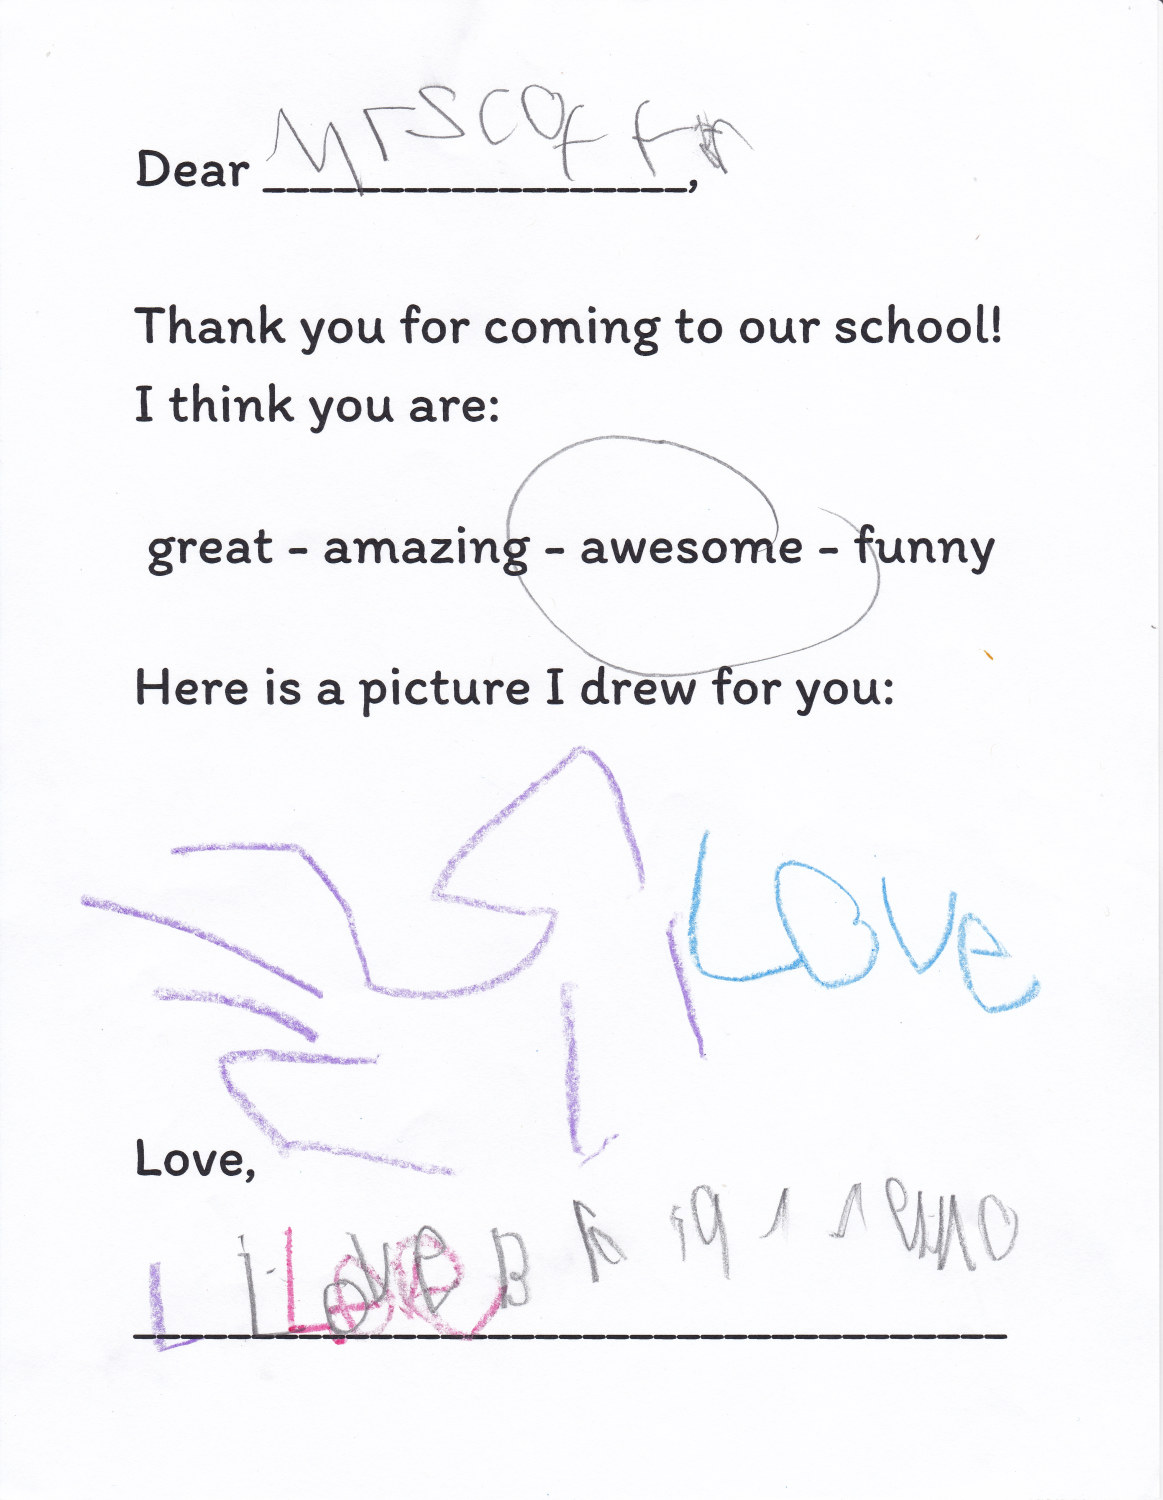 Dear Mrs Coffin,
Thank you for coming to our school!
I think you are:
great - amazing - awesome - funny
Here is a picture I drew for you:
LOVe
Love,
L Love